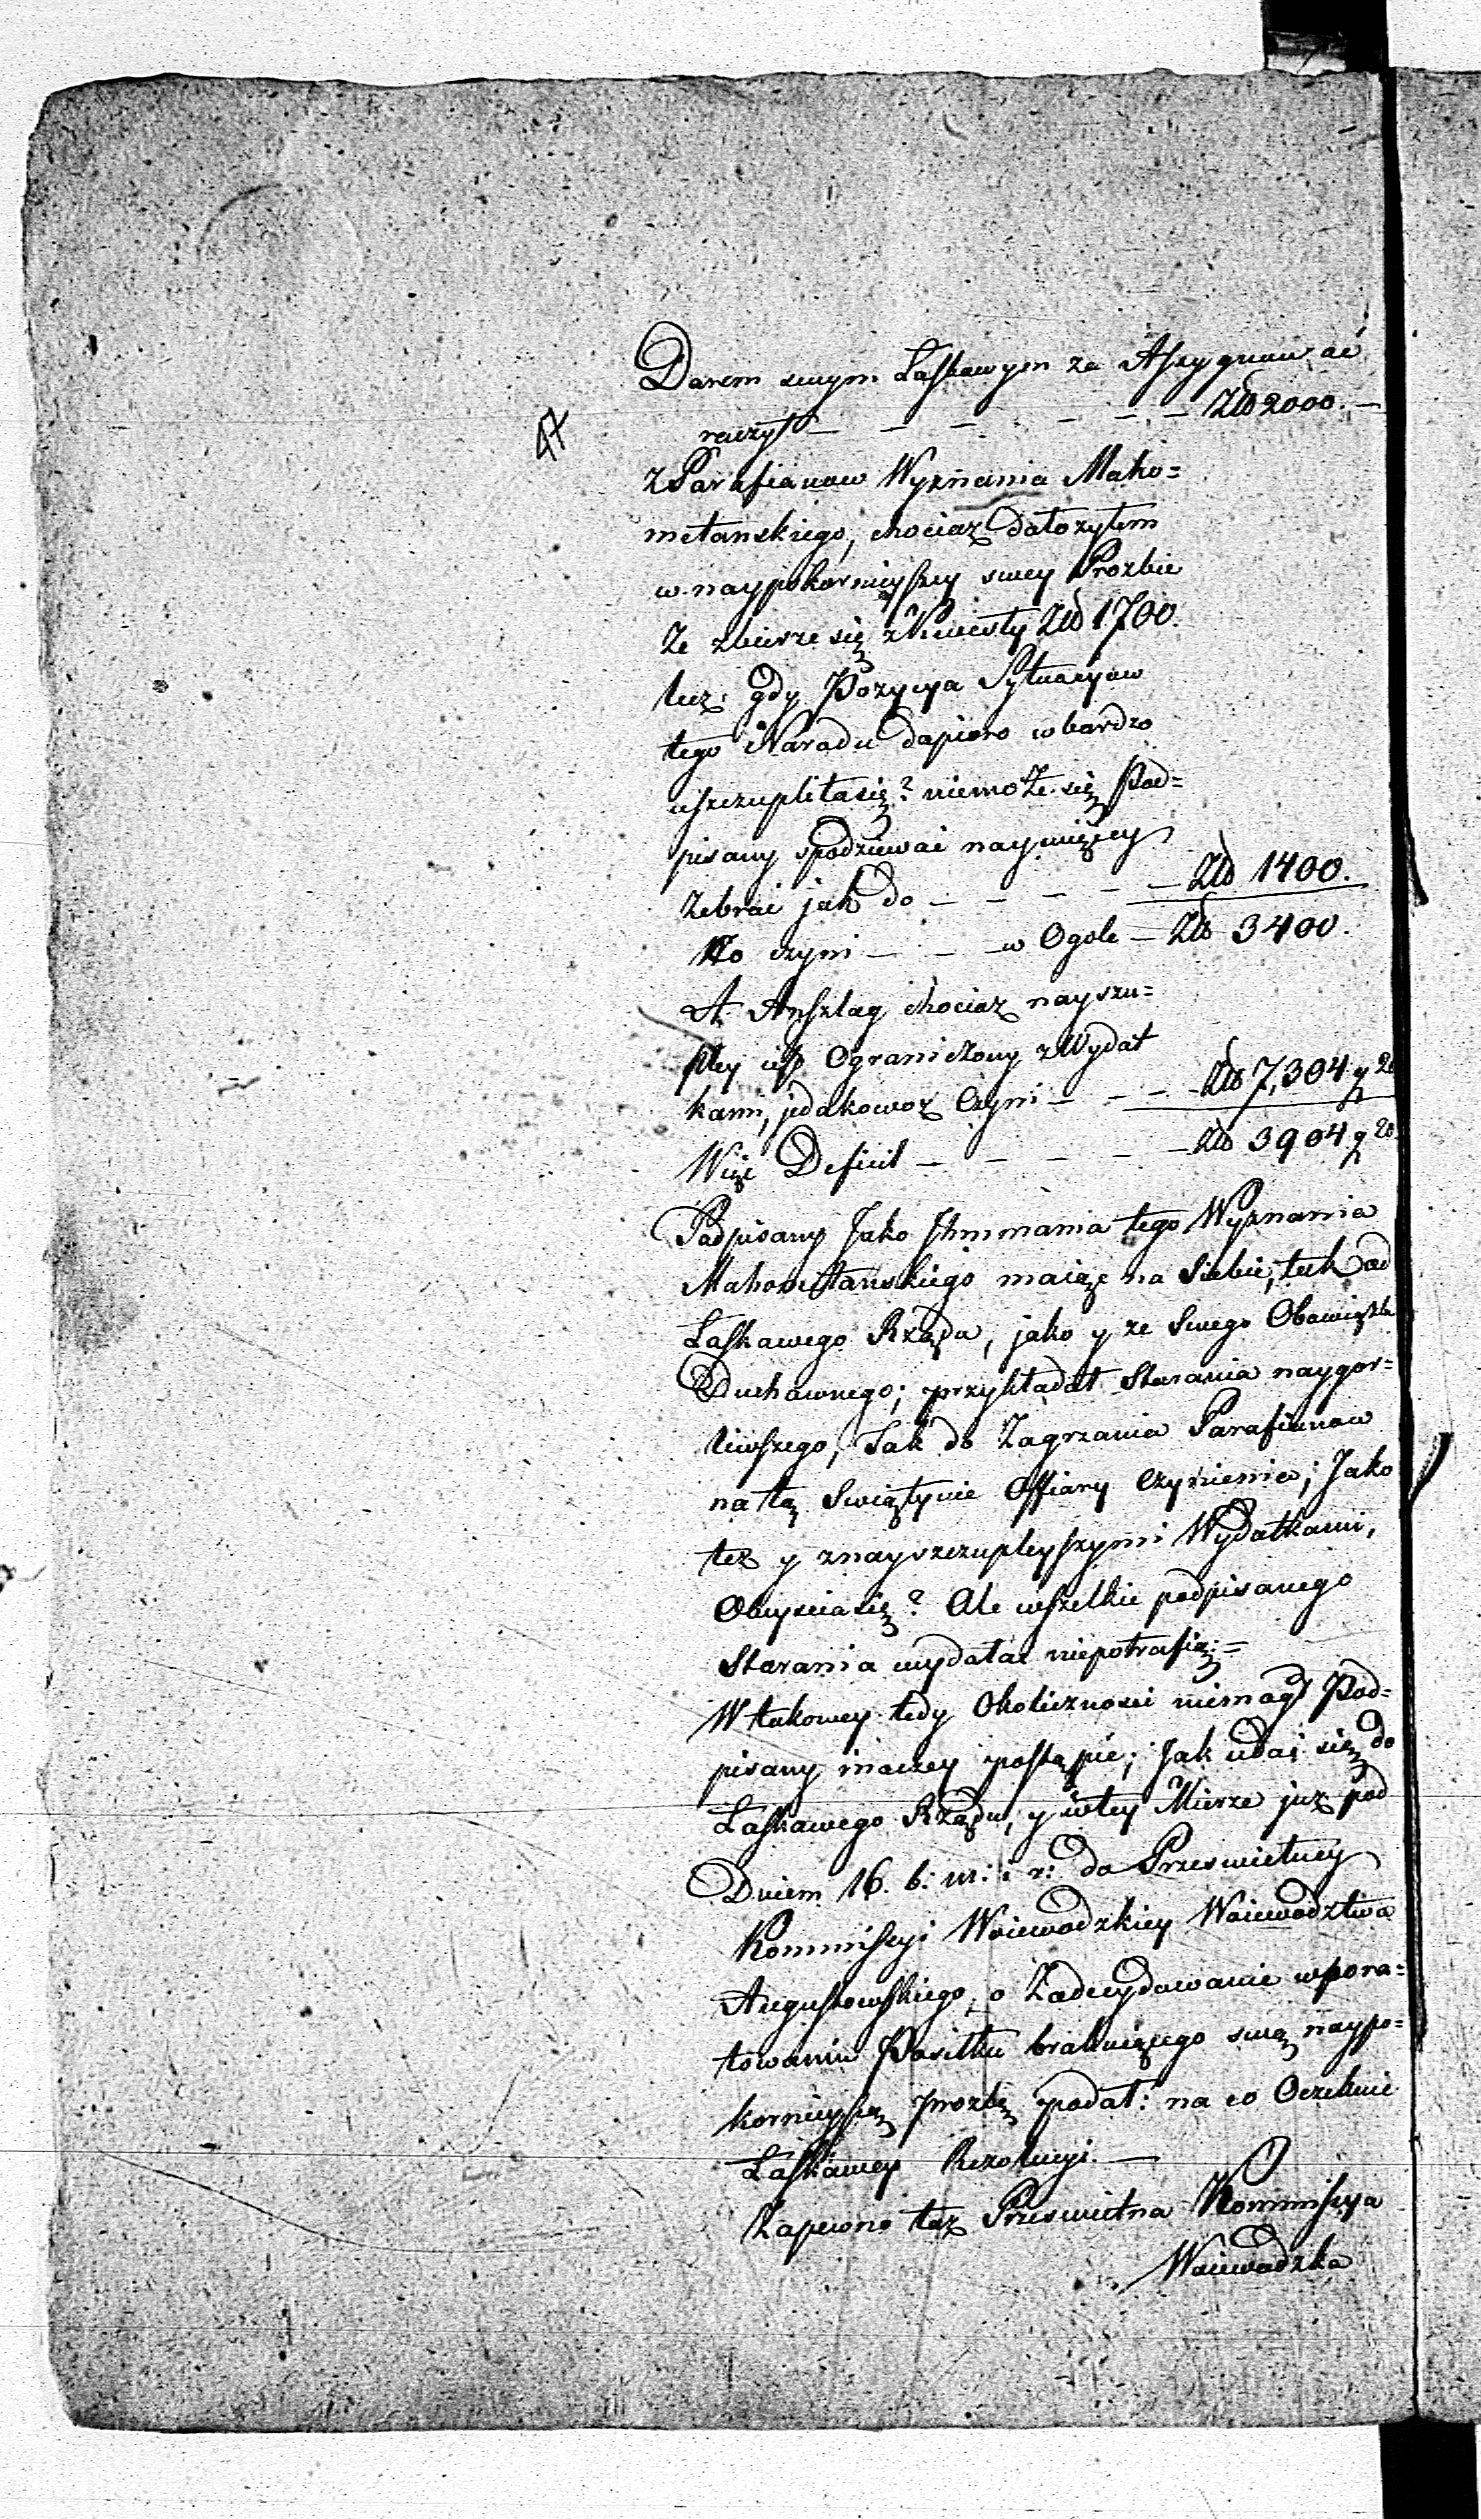 Darem swym Łaskawym za Assygnować
raczył — — — — — — Złł 2000. —
47
z Parafianow Wyznania Maho=
metanskiego, chociaz Dołozyłem
w naypokornieyszey swey Prozbie
Ze zbierze się z Kwesty Złł 1700.
lecz gdy Pozycya Sytuacyow
tego Narodu dopiero w bardzo
uszczupliła się? niemoże się Pod=
pisany spodziewać naywięcey
Zebrać jak do — — — — — Złł 1400.
Co czyni — — — w Ogole — Złł 3400.
A Anszlag chociaz nayszu=
pley iest Ograniczony z Wydat
kami, jedakowoz Czyni — — — Złł 7,304 g 20
Więc Deficit — — — — — Złł 3904. g 20.
Podpisany Jako Jhmmania tego Wyznania
Mahometanskiego maiąc na Siebie, tak od
Łaskawego Rządu, jako y ze Swego Obowiązku
Duchownego; przykładał Starania naygor=
liwszego, Tak do Zagrzania Parafianow
na tą Swiątynie Offiary Czynienia; Jako
tez y znayszczupleyszymi Wydatkami,
Obeyscia się? Ale wszelkie podpisanego
Starania wydołać niepotrafią: =
W takowey tedy Okolicznosci niemogł Pod=
pisany inaczey postąpić; Jak udać się do
Łaskawego Rządu, y w tey Mierze juz pod
Dniem 16. b: m: i r: do Przeswietney
Kommissyi Woiewodzkiey Woiewodztwa
Augustowskiego, o Zadecydowanie w pora=
towaniu Posiłku brakuiącego swą naypo=
kornieyszą prozbę podał: na co Oczekuie
Łaskawey Rezolucyi. —
Zapewno taz Przeswietna Kommissya
Woiewodzka